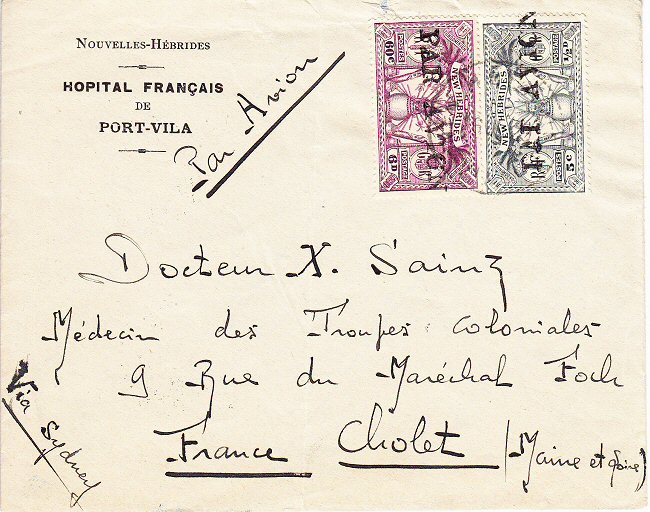 NOUVELLES-HÉBRIDES
HOPITAL FRANÇAIS
DE
PORT-VILA
Par Avion
60c
POSTES
NEW HEBRIDES
POSTAGE
6D
PAR AVION
½D
POSTAGE
NEW HEBRIDES
POSTES
5c
PAR AVION
Docteur X. Sainz
Médecin des Troupes Coloniales
9 Rue du Maréchal Foch
France Cholet (Maine et Loire)
Via Sydney